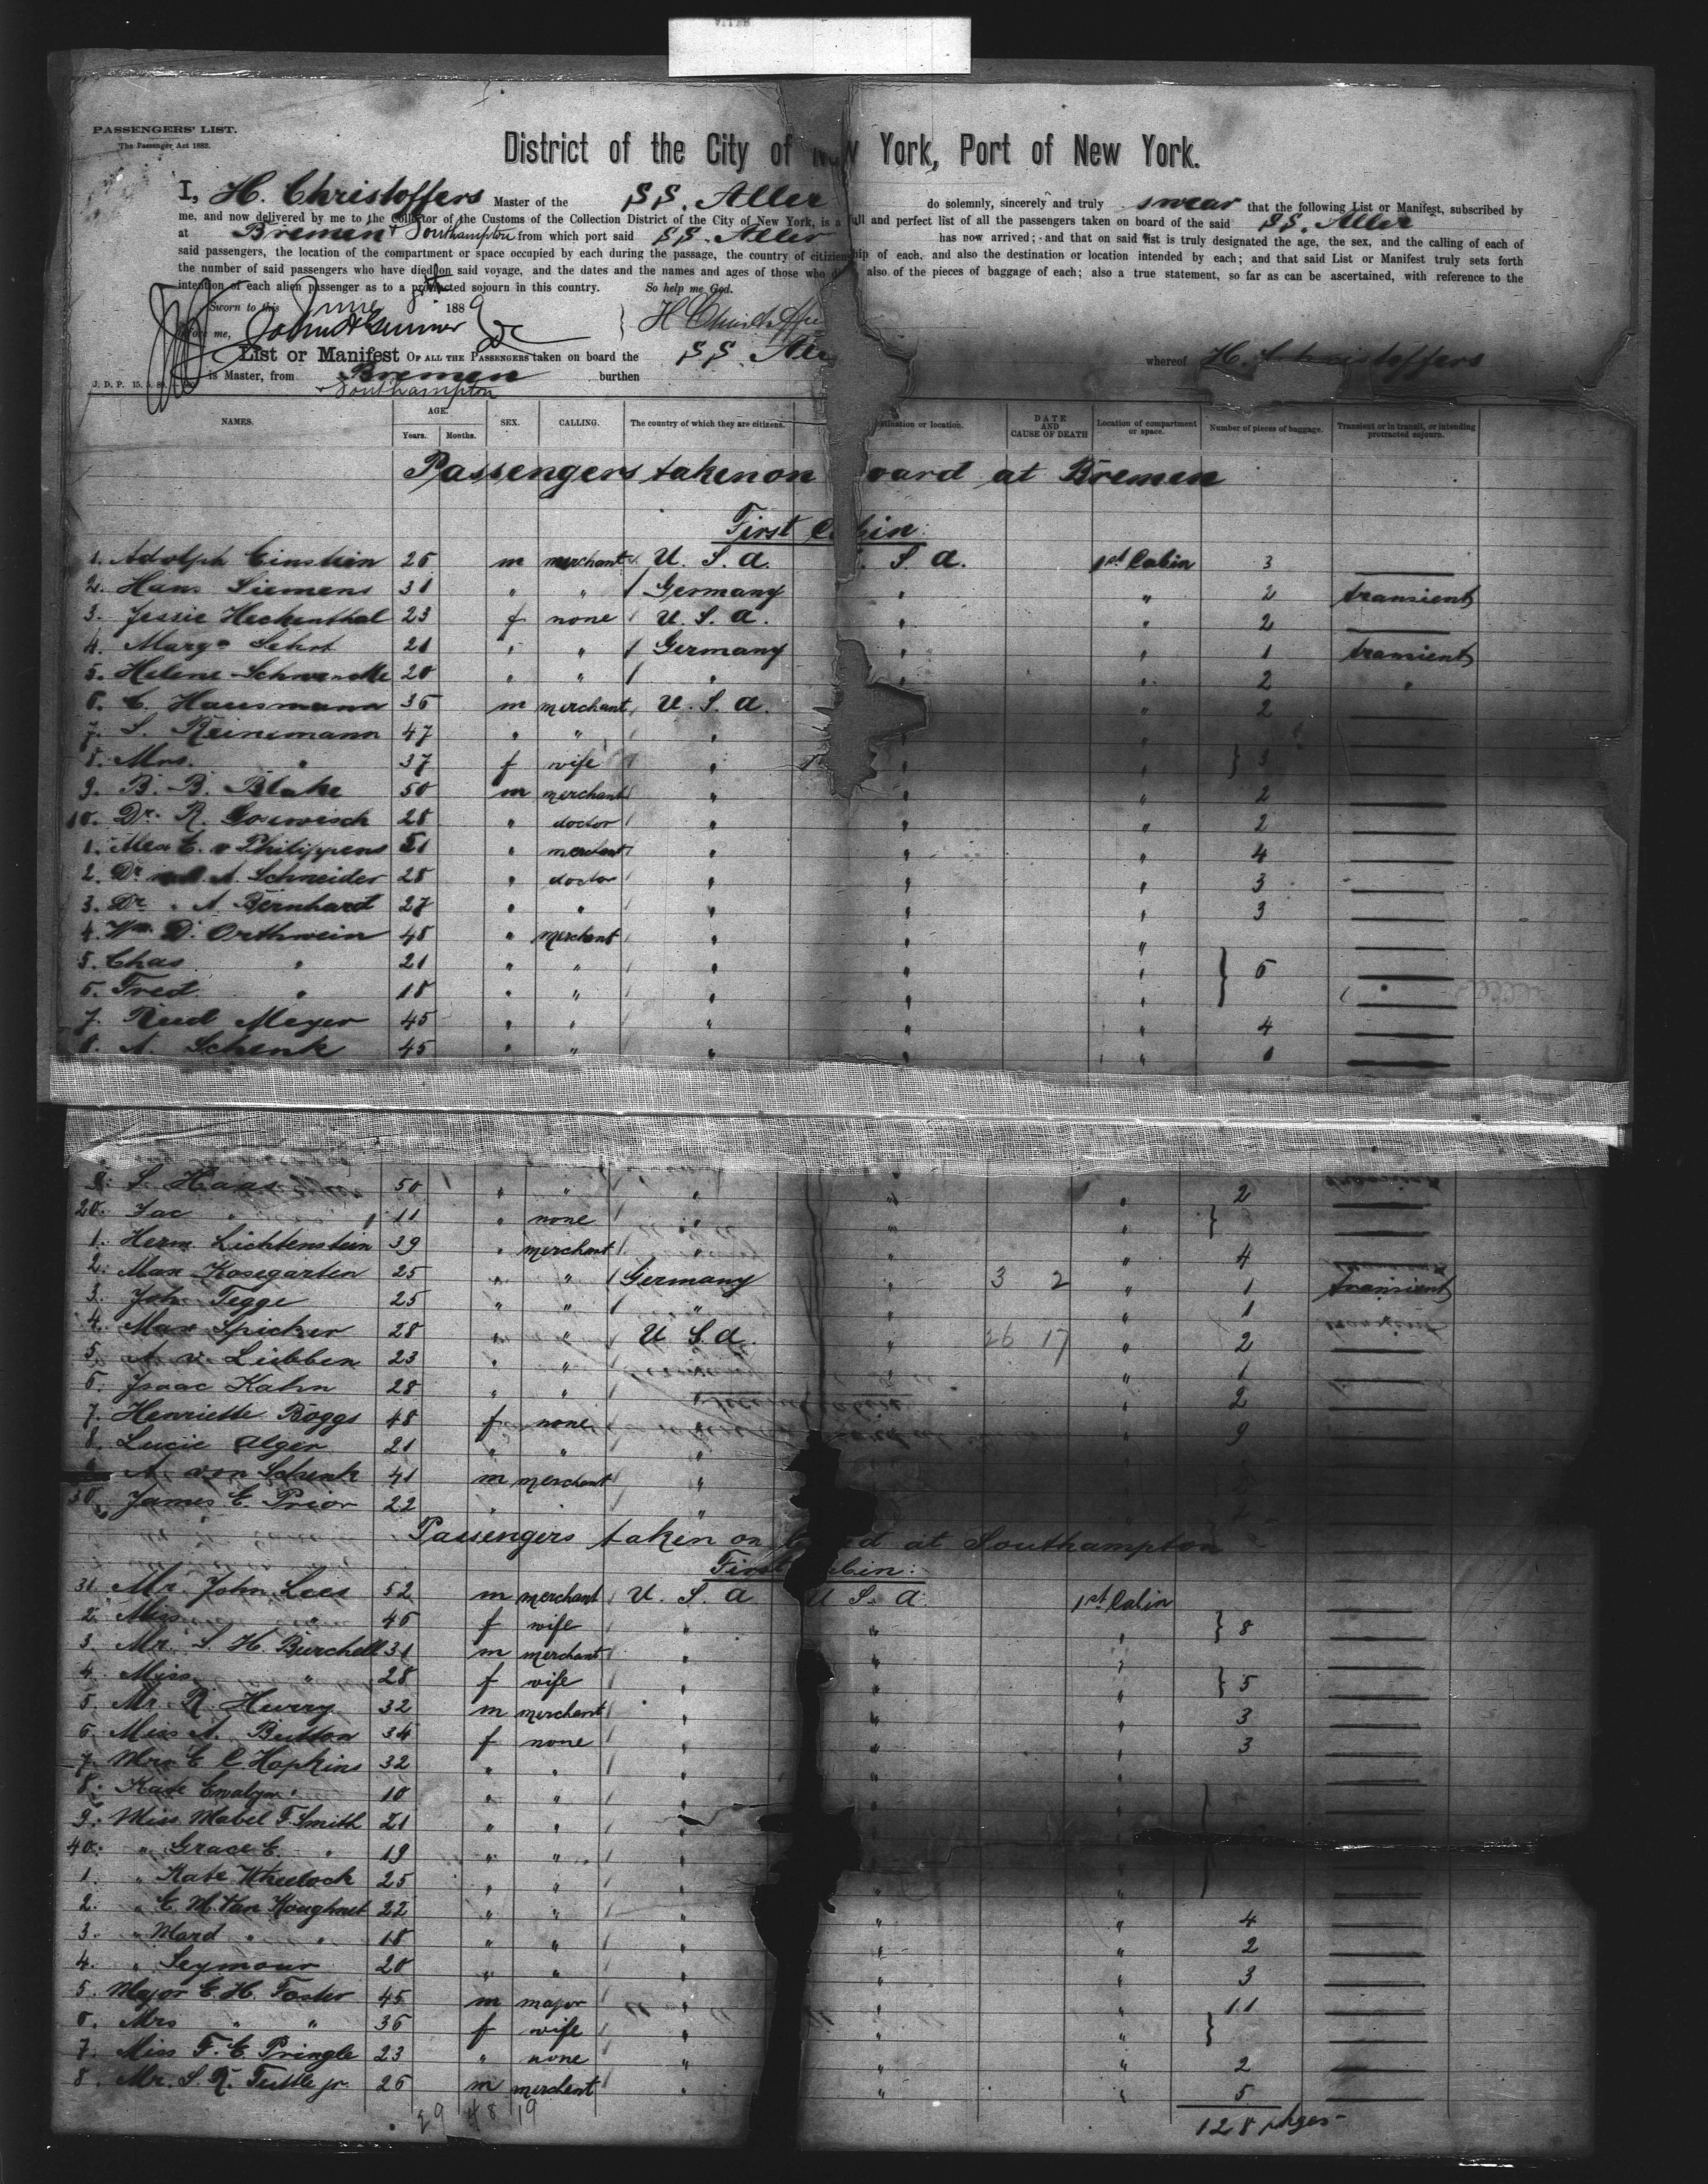 PASSENGERS' LIST.
The Passenger Act 1882.
District of the City of New York, Port of New York.
I, H. Christoffers Master of the SS. Aller do solemnly, sincerely and truly swear that the following List or Manifest, subscribed by
me, and now delivered by me to the Collector of the Customs of the Collection District of the City of New York, is a full and perfect list of all the passengers taken on board of the said SS. Aller
at Bremen & Southampton from which port said SS. Aller has now arrived; and that on said list is truly designated the age, the sex, and the calling of each of
said passengers, the location of the compartment or space occupied by each during the passage, the country of citizenship of each, and also the destination or location intended by each; and that said List or Manifest truly sets forth
the number of said passengers who have died on said voyage, and the dates and the names and ages of those who also of the pieces of baggage of each; also a true statement, so far as can be ascertained, with reference to the
intention of each alien passenger as to a protracted sojourn in this country. So help me God.
Sworn to this June 1889
me, H Christoffe
List or Manifest OF ALL THE PASSENGERS taken on board the SS. Alle whereof H. Christoffers
is Master, from Bremen burthen
& Southampton
J. D. P. 15. 5. 89.
NAMES. AGE. Years. Months. SEX. CALLING. The country of which they are citizens. destination or location. DATE AND CAUSE OF DEATH Location of compartment or space. Number of pieces of baggage. Transient or in transit, or intending protracted sojourn.
Passengers taken on oard at Bremen
First Cabin:
1. Adolph Einstein 26 m merchant U. S. A. S. A. 1st Cabin 3
2. Hans Siemens 31 " " Germany " " 2 transient
3. Jessie Heckenthal 23 f none U. S. A. " " 2
4. Marg. Sehrt 21 " " Germany " " 1 transient
5. Helene 20 " " " " 2 "
6. C. Hausmann 36 m merchant U. S. A. " 2
7. S. Reinemann 47 " " " " "
8. Mrs. " 37 f wife " " " } 3
9. B. B. Blake 50 m merchant " " " 2
10. Dr. R. 28 " doctor " " " 2
1. Alex E. v Philippens 51 " merchant " " " 4
2. Dr A. Schneider 28 " doctor " " " 3
3. Dr. " A Bernhard 27 " " " " " 3
4. Wm. D. Orthwein 48 " merchant " " "
5. Chas " 21 " " " " " } 6
6. Fred. " 18 " " " " "
7. Meyer 45 " " " " " 4
8. A. Schenk 45 " " " " " 1
9. S. Haas 50 " " " " " 2
20. Jac " 11 " none " " " }
1. Herm. Lichtenstein 39 " merchant " " " 4
2. Max Kosegarten 25 " " Germany " 3 2 " 1 transient
3. Joh. Tegge 25 " " " " " 1
4. Max Spicker 28 " " U. S. A. " 26 17 " 2
5. A. v. Lübben 23 " " " 1
6. Isaac Kahn 28 " " " " 2
7. Henriette Boggs 48 f none " " 9
8. Lucie Alger 21 " " "
A. von Schenk 41 m merchant "
30. James E. Prior 22 " " "
Passengers taken on board at Southampton
First Cabin:
31 Mr. John Lees 52 m merchant U. S. A U. S. A. 1st Cabin
2. Miss " 46 f wife " " " } 8
3. Mr. S. H. Burchell 31 m merchant " " "
4. Miss " 28 f wife " " " } 5
5. Mr. R. Hurry 32 m merchant " " " 3
6. Miss A. Button 34 f none " " " 3
7. Mrs E C Hopkins 32 " " " " "
8. Kate Evalyn " 10 " " " " "
9. Miss Mabel F. Smith 21 " " " "
40. " Grace E. " 19 " " "
1. " Kate Wheelock 25 " " " " "
2. " E. M. Van Koughnet 22 " " " " " 4
3. " " " 18 " " " " " 2
4. " Seymour 20 " " " " " 3
5. Major E. H. Foster 45 m major " " " 11
6. Mrs " " 36 f wife " " " }
7. Miss F. E. Pringle 23 " none " " " 2
8. Mr. S. R. Tuttle jr. 26 m merchant " " " 5
29 48 19 128 pkges